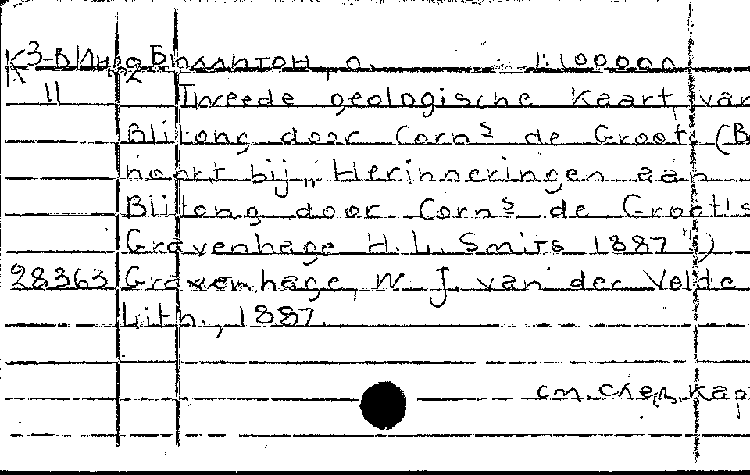 К3-В Биллитон, о. 1:100000
11 Tweede geologische Kaart van
Blitong door Corns de Groot (B
hoort bij „Herinneringen aan
Blitong door Corns de Groot 's
Gravenhage H. L. Smits 1887")
28363 Gravenhage, W. J. van der Velde
Lith., 1887.
см. след. кар